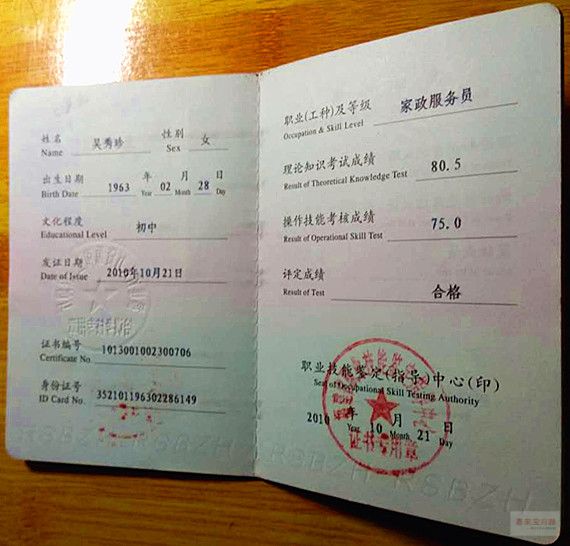 姓名 吴秀珍 性别 女
Name Sex
出生日期 1963 年 02 月 28 日
Birth Date Year Month Day
文化程度 初中
Educational Level
发证日期 2010年10月21日
Date of Issue
证书编号 1013001002300706
Certificate No.
身份证号 352101196302286149
ID Card No.
RSBZH
职业(工种)及等级 家政服务员
Occupation & Skill Level
理论知识考试成绩 80.5
Result of Theoretical Knowledge Test
操作技能考核成绩 75.0
Result of Operational Skill Test
评定成绩 合格
Result of Test
职业技能鉴定(指导)中心(印)
Seal of Occupational Skill Testing Authority
2010 年 10 月 21 日
Year Month Day
证书专用章
RSBZH RSBZH